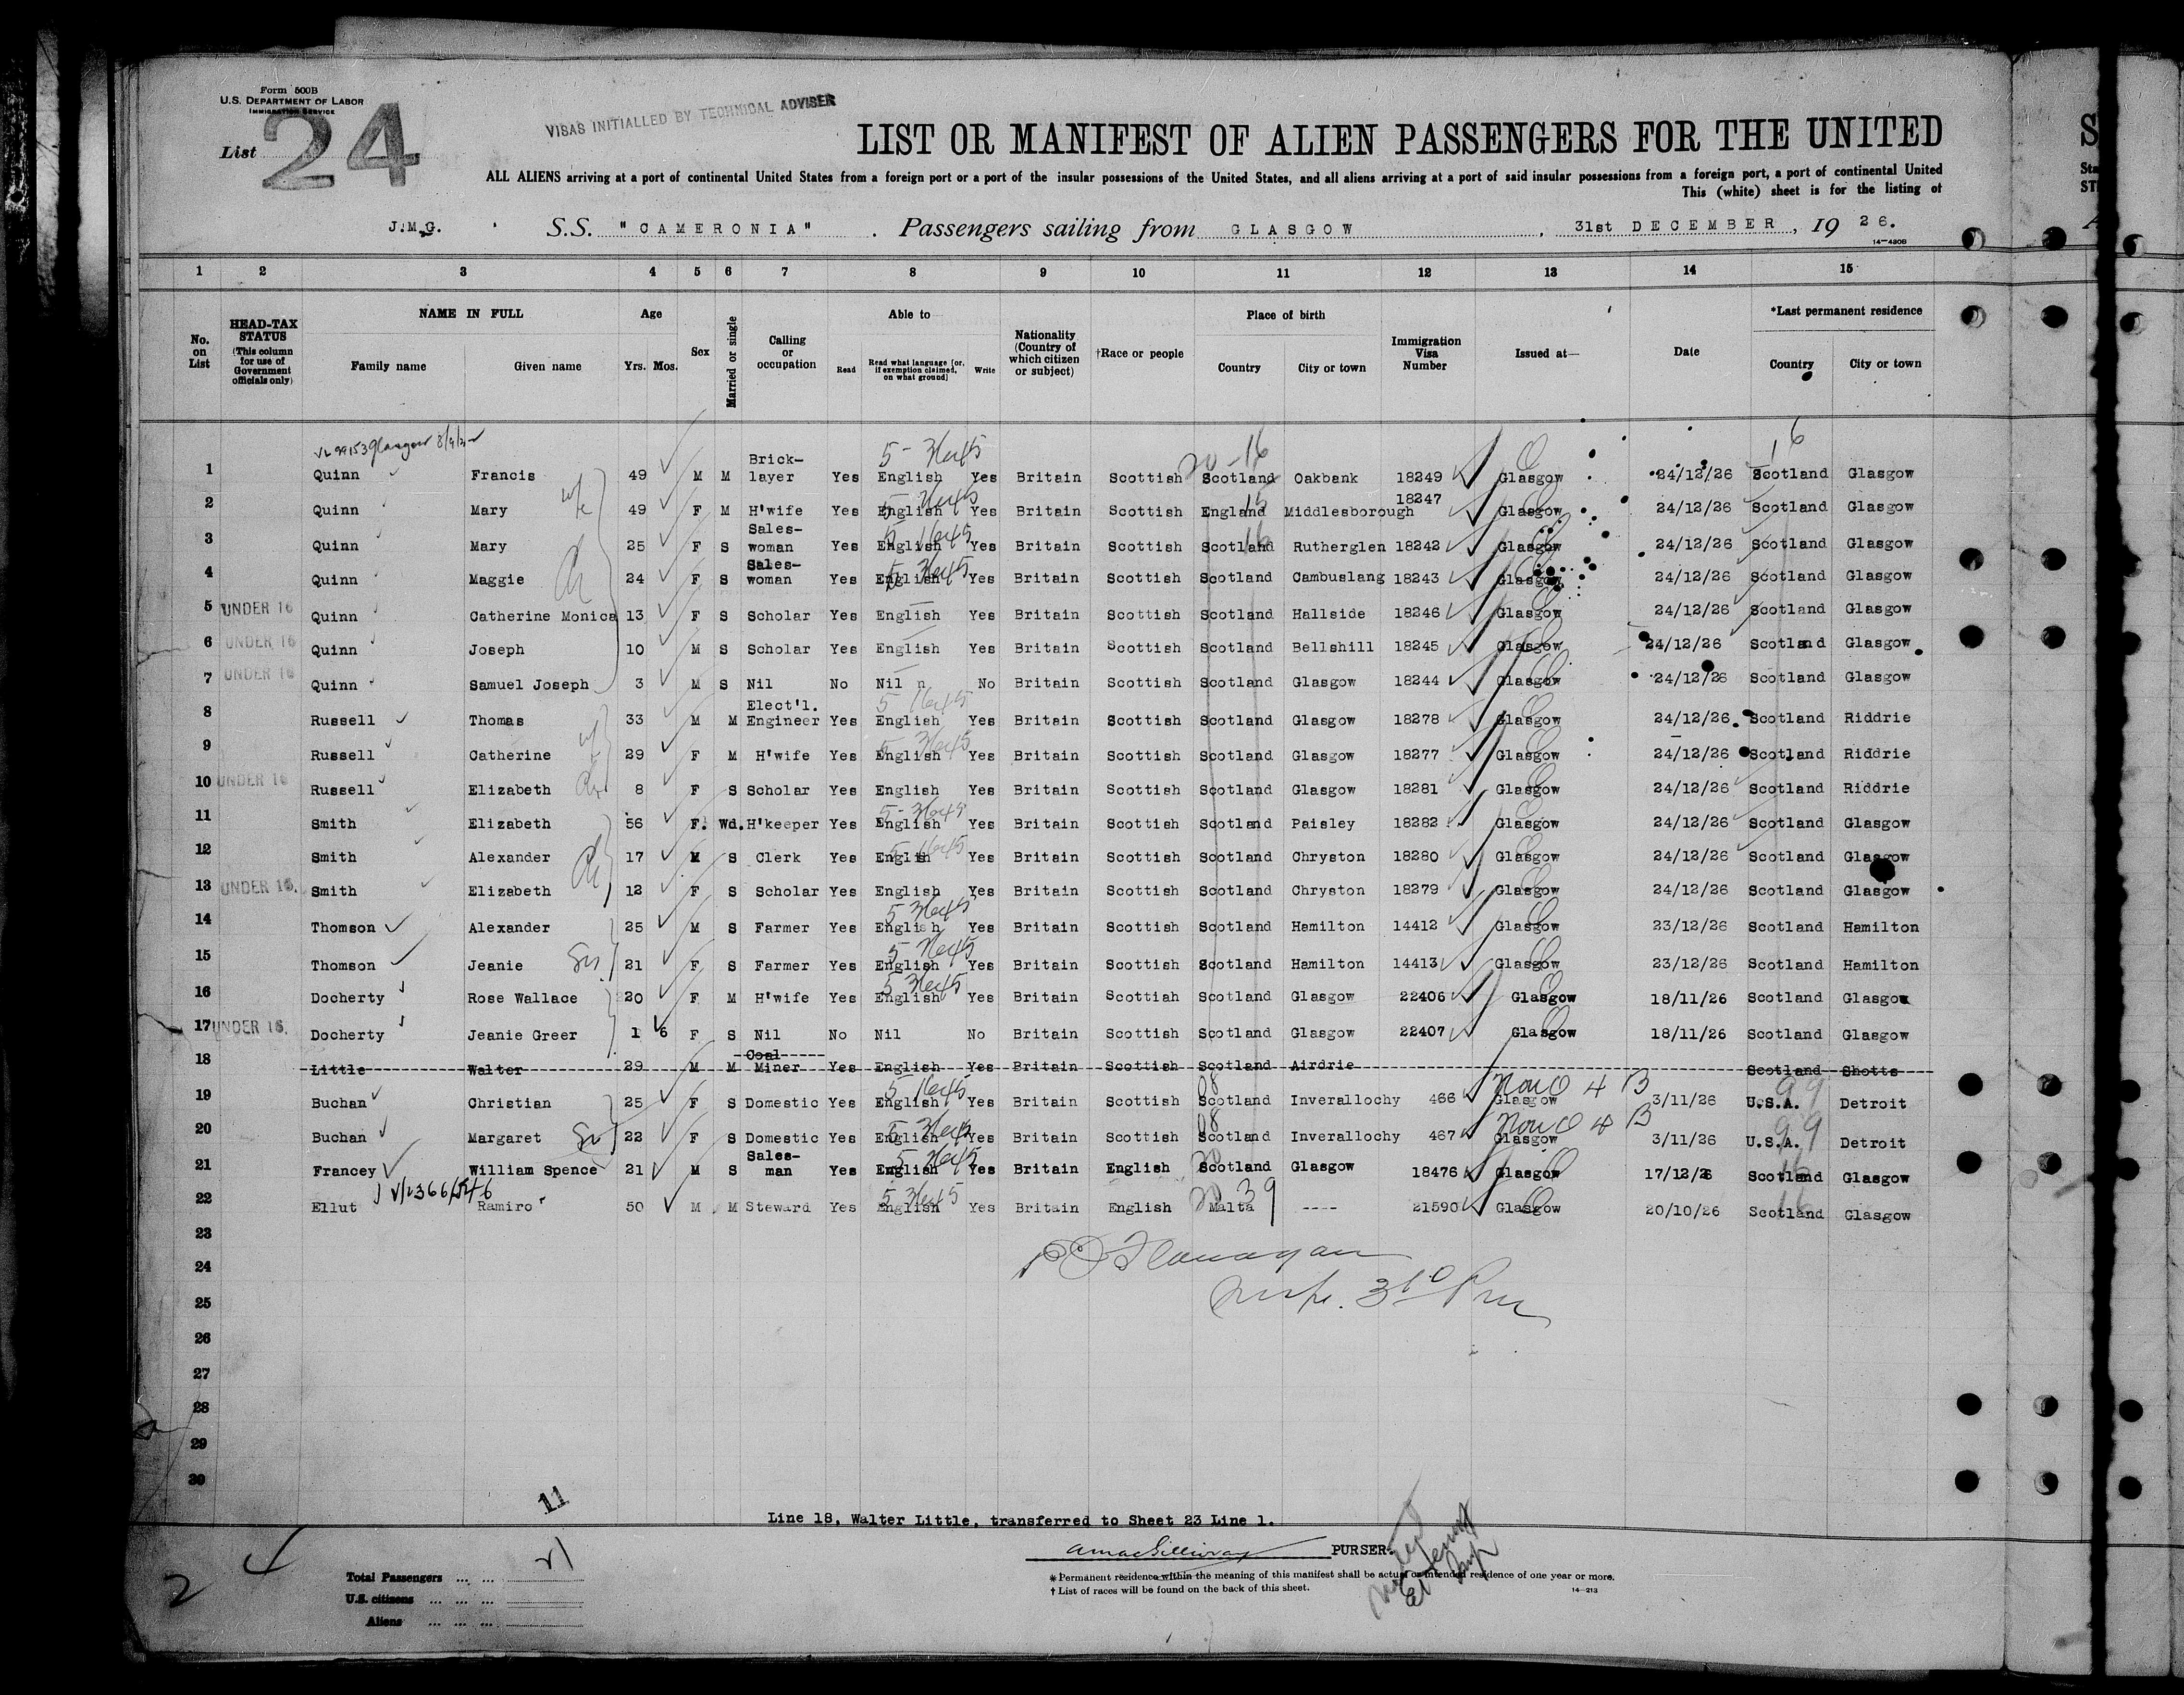 Form 500B
U.S. DEPARTMENT OF LABOR
IMMIGRATION SERVICE
List 24
VISAS INITIALLED BY TECHNICAL ADVISER
LIST OR MANIFEST OF ALIEN PASSENGERS FOR THE UNITED
ALL ALIENS arriving at a port of continental United States from a foreign port or a port of the insular possessions of the United States, and all aliens arriving at a port of said insular possessions from a foreign port, a port of continental United
This (white) sheet is for the listing of
J.M.G. S.S. "CAMERONIA" Passengers sailing from GLASGOW, 31st DECEMBER, 19 26.
14-430B
1 2 3 4 5 6 7 8 9 10 11 12 13 14 15
No. on List
HEAD-TAX STATUS (This column for use of Government officials only)
NAME IN FULL Family name Given name
Age Yrs. Mos.
Sex
Married or single
Calling or occupation
Able to Read Read what language [or, if exemption claimed, on what ground] Write
Nationality (Country of which citizen or subject)
†Race or people
Place of birth Country City or town
Immigration Visa Number
Issued at—
Date
*Last permanent residence Country City or town
1 Quinn Francis 49 M M Brick-layer Yes English Yes Britain Scottish Scotland Oakbank 18249 Glasgow 24/12/26 Scotland Glasgow
2 Quinn Mary 49 F M H'wife Yes English Yes Britain Scottish England Middlesborough 18247 Glasgow 24/12/26 Scotland Glasgow
3 Quinn Mary 25 F S Sales-woman Yes English Yes Britain Scottish Scotland Rutherglen 18242 Glasgow 24/12/26 Scotland Glasgow
4 Quinn Maggie 24 F S Sales-woman Yes English Yes Britain Scottish Scotland Cambuslang 18243 Glasgow 24/12/26 Scotland Glasgow
5 UNDER 16 Quinn Catherine Monica 13 F S Scholar Yes English Yes Britain Scottish Scotland Hallside 18246 Glasgow 24/12/26 Scotland Glasgow
6 UNDER 16 Quinn Joseph 10 M S Scholar Yes English Yes Britain Scottish Scotland Bellshill 18245 Glasgow 24/12/26 Scotland Glasgow
7 UNDER 16 Quinn Samuel Joseph 3 M S Nil No Nil No Britain Scottish Scotland Glasgow 18244 Glasgow 24/12/26 Scotland Glasgow
8 Russell Thomas 33 M M Elect'l. Engineer Yes English Yes Britain Scottish Scotland Glasgow 18278 Glasgow 24/12/26 Scotland Riddrie
9 Russell Catherine 29 F M H'wife Yes English Yes Britain Scottish Scotland Glasgow 18277 Glasgow 24/12/26 Scotland Riddrie
10 UNDER 16 Russell Elizabeth 8 F S Scholar Yes English Yes Britain Scottish Scotland Glasgow 18281 Glasgow 24/12/26 Scotland Riddrie
11 Smith Elizabeth 56 F. Wd. H'keeper Yes English Yes Britain Scottish Scotland Paisley 18282 Glasgow 24/12/26 Scotland Glasgow
12 Smith Alexander 17 M S Clerk Yes English Yes Britain Scottish Scotland Chryston 18280 Glasgow 24/12/26 Scotland Glasgow
13 UNDER 16. Smith Elizabeth 12 F S Scholar Yes English Yes Britain Scottish Scotland Chryston 18279 Glasgow 24/12/26 Scotland Glasgow
14 Thomson Alexander 25 M S Farmer Yes English Yes Britain Scottish Scotland Hamilton 14412 Glasgow 23/12/26 Scotland Hamilton
15 Thomson Jeanie 21 F S Farmer Yes English Yes Britain Scottish Scotland Hamilton 14413 Glasgow 23/12/26 Scotland Hamilton
16 Docherty Rose Wallace 20 F M H'wife Yes English Yes Britain Scottish Scotland Glasgow 22406 Glasgow 18/11/26 Scotland Glasgow
17 UNDER 16. Docherty Jeanie Greer 1 6 F S Nil No Nil No Britain Scottish Scotland Glasgow 22407 Glasgow 18/11/26 Scotland Glasgow
18 Little Walter 29 M M Coal Miner Yes English Yes Britain Scottish Scotland Airdrie Scotland Shotts
19 Buchan Christian 25 F S Domestic Yes English Yes Britain Scottish Scotland Inverallochy 466 Glasgow 3/11/26 U.S.A. Detroit
20 Buchan Margaret 22 F S Domestic Yes English Yes Britain Scottish Scotland Inverallochy 467 Glasgow 3/11/26 U.S.A. Detroit
21 Francey William Spence 21 M S Sales-man Yes English Yes Britain English Scotland Glasgow 18476 Glasgow 17/12/26 Scotland Glasgow
22 Ellut Ramiro 50 M M Steward Yes English Yes Britain English Malta ---- 21590 Glasgow 20/10/26 Scotland Glasgow
23
24
25
26
27
28
29
30
11
Line 18, Walter Little, transferred to Sheet 23 Line 1.
PURSER.
Total Passengers ... ... 21
U.S. citizens ... ... ...
Aliens ... ... ...
* Permanent residence within the meaning of this manifest shall be actual or intended residence of one year or more.
† List of races will be found on the back of this sheet.
14-213